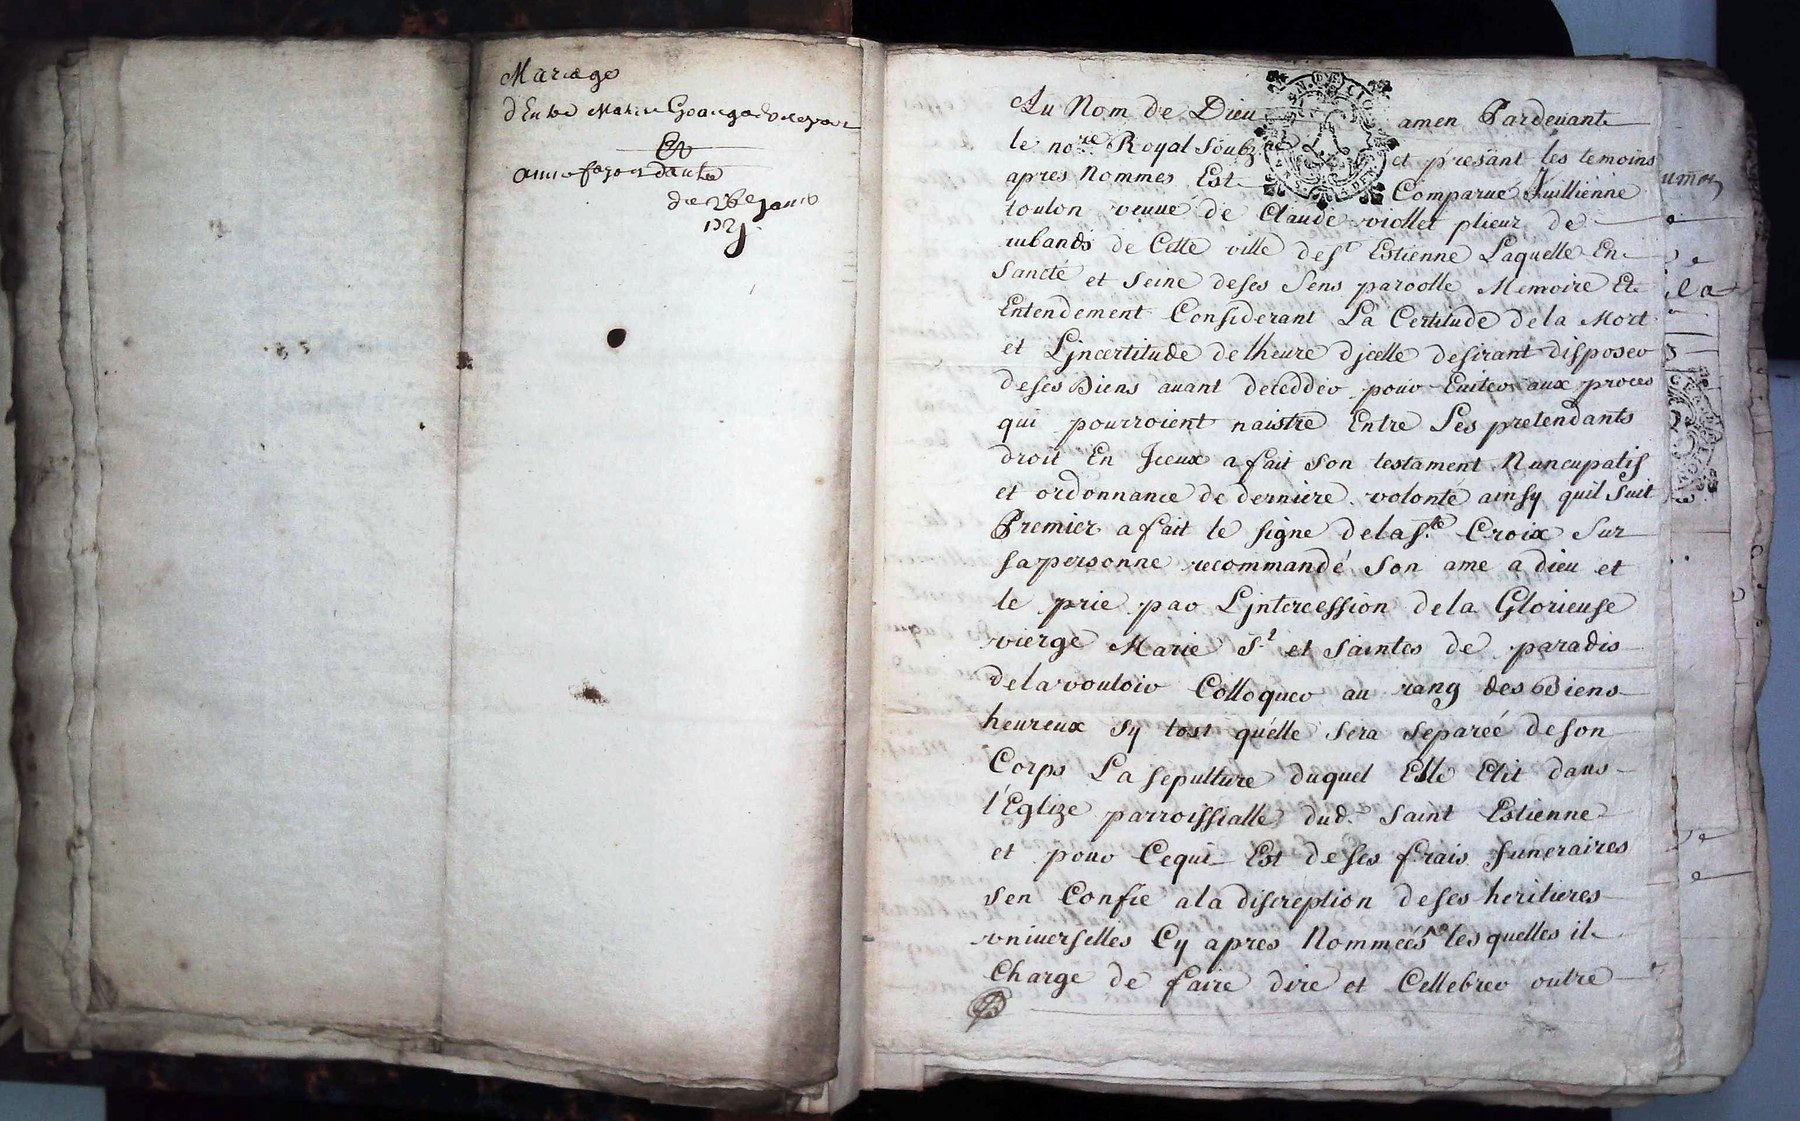 Mariage
d'Entre
Et
du 26e Janv
1721
Au Nom de Dieu amen Pardevant
le no.re Royal Soubz.né et présant les temoins
apres Nommes Est Comparuë Jullienne
toulon veuve de Claude viollet plieur de
rubands de Cette ville de St Estienne Laquelle En
Sancté et Seine de ses Sens paroolle Memoire Et
Entendement Considerant La Certitude de la Mort
et L'jncertitude de lheure d'jcelle desirant disposer
de ses Biens avant deceddér pour Eviter aux proces
qui pourroient naistre Entre Les pretendants
droit En Jceux a fait Son testament Nuncupatif
et ordonnance de derniere volonté ainsy quil Suit
Premier a fait le signe de la Ste Croix Sur
sa personne recommandé Son ame a dieu et
le prie par L'jntercession de la Glorieuse
vierge Marie St et Saintes de paradis
de la vouloir Colloquer au rang des Biens
heureux sy tost qu'elle Sera Separéé de son
Corps La sepulture duquel Elle Elit dans
l'Eglize parroissialle dud. Saint Estienne
et pour Cequi Est de ses frais funeraires
s'en Confie a la discreption de ses heritieres
vniverselles Cy apres Nommeés lesquelles il
Charge de faire dire et Cellebrer outre